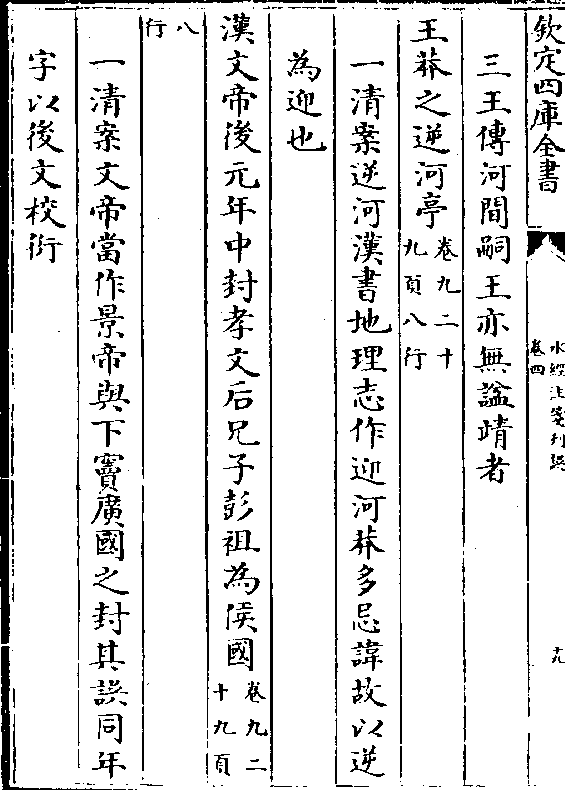 欽定四庫全書
水經注箋刋誤
卷四
十九
三王傳河間嗣王亦無諡靖者
王莽之逆河亭卷九二十
九頁八行
一清案逆河漢書地理志作迎河莽多忌諱故以逆
為迎也
漢文帝後元年中封孝文后兄子彭祖為侯國卷九二
十九頁
八
行
一清案文帝當作景帝與下竇廣國之封其誤同年
字以後文校衍